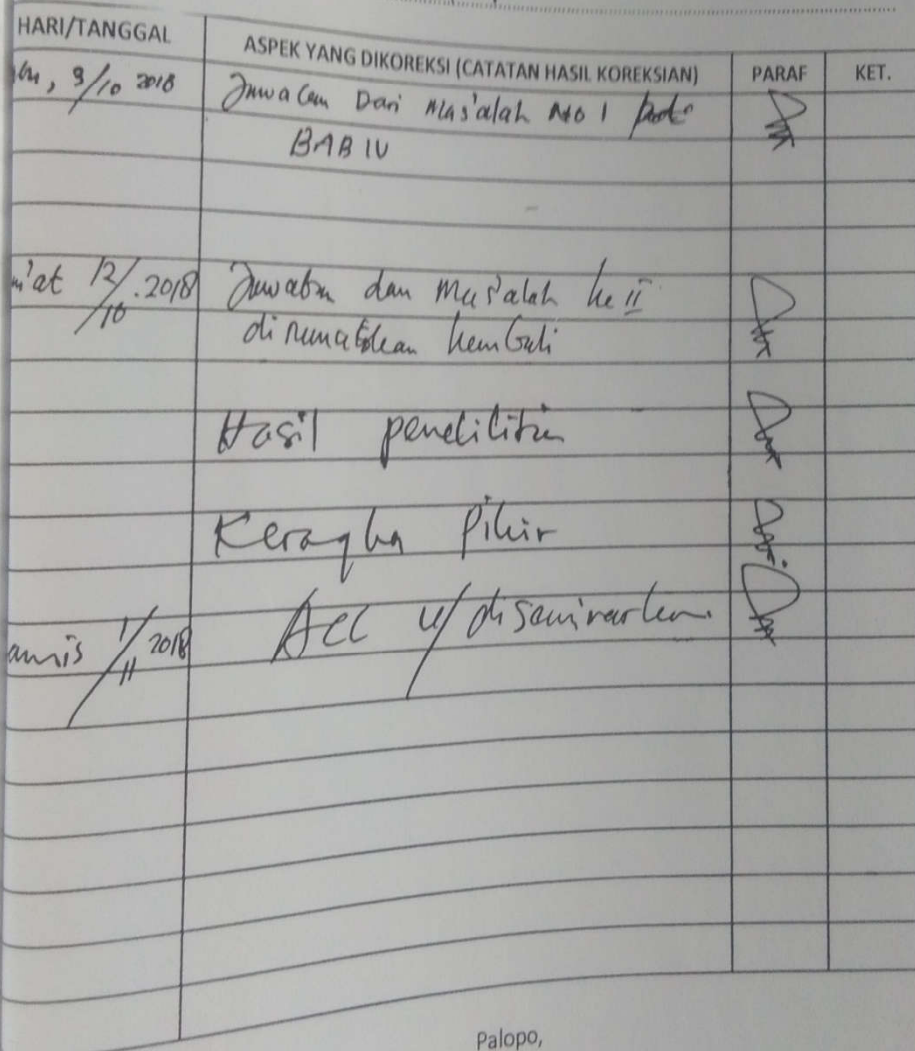 HARI/TANGGAL ASPEK YANG DIKOREKSI (CATATAN HASIL KOREKSIAN) PARAF KET.
9/10 2018 Jawaban Dari Mas'alah No 1 pada
BAB IV
m'at 12/10.2018 Jawaban dan Mas'alah ke II
dirumuskan kembali
Hasil penelitian
Kerangka Pikir
amis 1/11 2018 Acc u/ diseminarkan
Palopo,